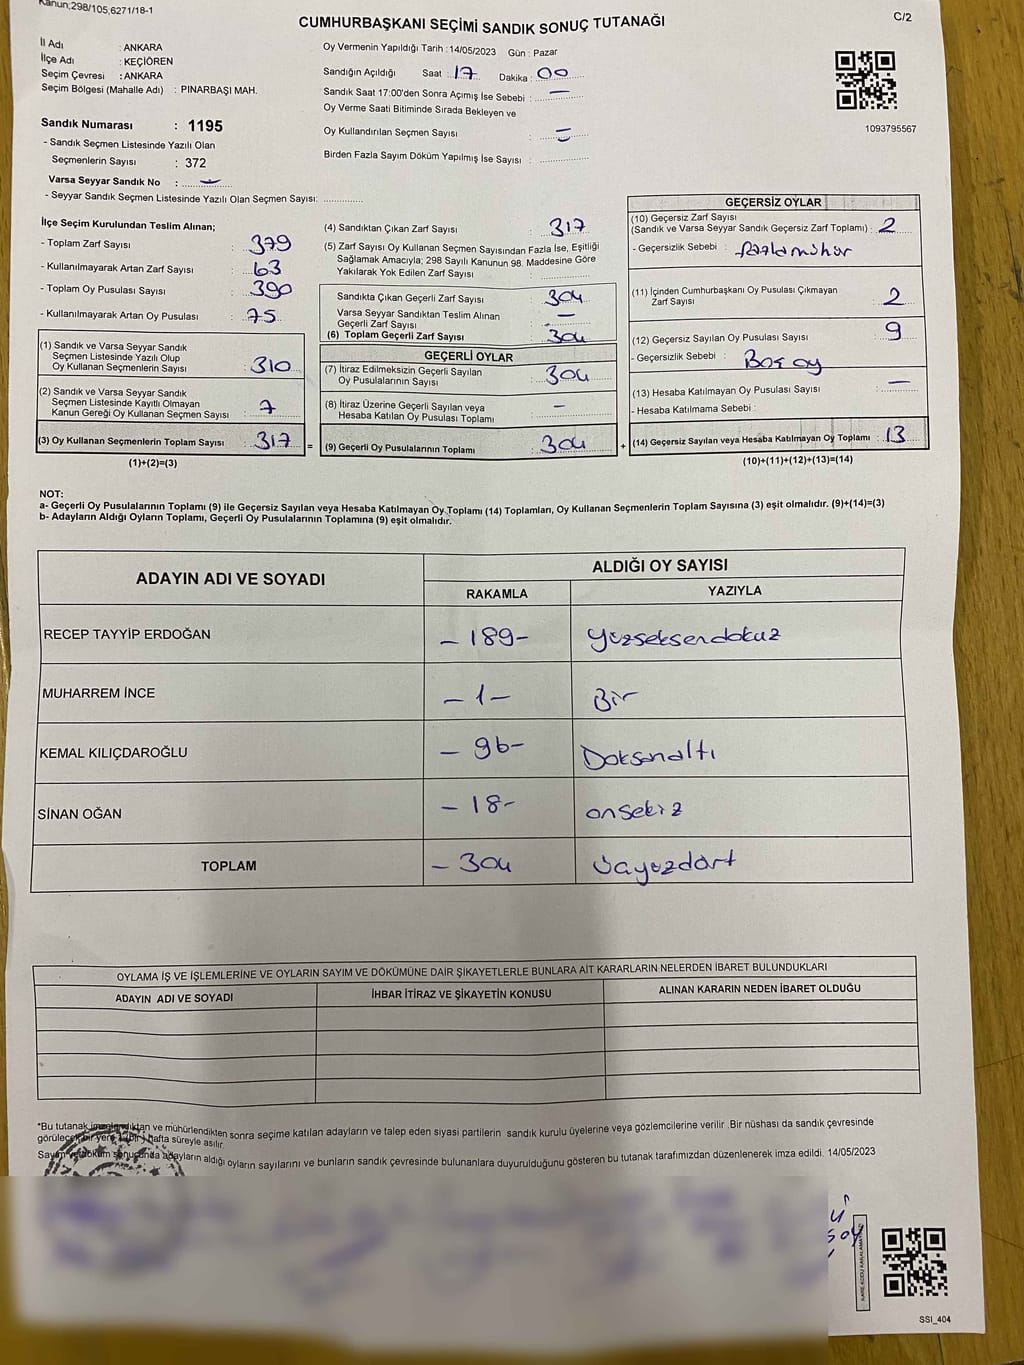 Kanun;298/105,6271/18-1
C/2
CUMHURBAŞKANI SEÇİMİ SANDIK SONUÇ TUTANAĞI
İl Adı : ANKARA
İlçe Adı : KEÇİÖREN
Seçim Çevresi : ANKARA
Seçim Bölgesi (Mahalle Adı) : PINARBAŞI MAH.
Sandık Numarası : 1195
- Sandık Seçmen Listesinde Yazılı Olan
Seçmenlerin Sayısı : 372
Varsa Seyyar Sandık No : —
- Seyyar Sandık Seçmen Listesinde Yazılı Olan Seçmen Sayısı: ..............
Oy Vermenin Yapıldığı Tarih : 14/05/2023 Gün : Pazar
Sandığın Açıldığı Saat : 17 Dakika : 00
Sandık Saat 17:00'den Sonra Açımış İse Sebebi : —
Oy Verme Saati Bitiminde Sırada Bekleyen ve
Oy Kullandırılan Seçmen Sayısı : —
Birden Fazla Sayım Döküm Yapılmış İse Sayısı : ..............
1093795567
İlçe Seçim Kurulundan Teslim Alınan;
- Toplam Zarf Sayısı : 379
- Kullanılmayarak Artan Zarf Sayısı : 63
- Toplam Oy Pusulası Sayısı : 390
- Kullanılmayarak Artan Oy Pusulası : 75
(1) Sandık ve Varsa Seyyar Sandık
Seçmen Listesinde Yazılı Olup
Oy Kullanan Seçmenlerin Sayısı : 310
(2) Sandık ve Varsa Seyyar Sandık
Seçmen Listesinde Kayıtlı Olmayan
Kanun Gereği Oy Kullanan Seçmen Sayısı : 7
(3) Oy Kullanan Seçmenlerin Toplam Sayısı : 317
(1)+(2)=(3)
=
(4) Sandıktan Çıkan Zarf Sayısı : 317
(5) Zarf Sayısı Oy Kullanan Seçmen Sayısından Fazla İse, Eşitliği
Sağlamak Amacıyla; 298 Sayılı Kanunun 98. Maddesine Göre
Yakılarak Yok Edilen Zarf Sayısı : ..............
Sandıkta Çıkan Geçerli Zarf Sayısı : 304
Varsa Seyyar Sandıktan Teslim Alınan
Geçerli Zarf Sayısı : —
(6) Toplam Geçerli Zarf Sayısı : 304
GEÇERLİ OYLAR
(7) İtiraz Edilmeksizin Geçerli Sayılan
Oy Pusulalarının Sayısı : 304
(8) İtiraz Üzerine Geçerli Sayılan veya
Hesaba Katılan Oy Pusulası Toplamı : —
(9) Geçerli Oy Pusulalarının Toplamı : 304
+
GEÇERSİZ OYLAR
(10) Geçersiz Zarf Sayısı
(Sandık ve Varsa Seyyar Sandık Geçersiz Zarf Toplamı) : 2
- Geçersizlik Sebebi : fazla mühür
(11) İçinden Cumhurbaşkanı Oy Pusulası Çıkmayan
Zarf Sayısı : 2
(12) Geçersiz Sayılan Oy Pusulası Sayısı : 9
- Geçersizlik Sebebi : Boş oy
(13) Hesaba Katılmayan Oy Pusulası Sayısı : —
- Hesaba Katılmama Sebebi :
(14) Geçersiz Sayılan veya Hesaba Katılmayan Oy Toplamı : 13
(10)+(11)+(12)+(13)=(14)
NOT:
a- Geçerli Oy Pusulalarının Toplamı (9) ile Geçersiz Sayılan veya Hesaba Katılmayan Oy Toplamı (14) Toplamları, Oy Kullanan Seçmenlerin Toplam Sayısına (3) eşit olmalıdır. (9)+(14)=(3)
b- Adayların Aldığı Oyların Toplamı, Geçerli Oy Pusulalarının Toplamına (9) eşit olmalıdır.
ADAYIN ADI VE SOYADI
ALDIĞI OY SAYISI
RAKAMLA YAZIYLA
RECEP TAYYİP ERDOĞAN - 189 - Yüzseksendokuz
MUHARREM İNCE - 1 - Bir
KEMAL KILIÇDAROĞLU - 96 - Doksanaltı
SİNAN OĞAN - 18 - onsekiz
TOPLAM - 304 üçyüzdört
OYLAMA İŞ VE İŞLEMLERİNE VE OYLARIN SAYIM VE DÖKÜMÜNE DAİR ŞİKAYETLERLE BUNLARA AİT KARARLARIN NELERDEN İBARET BULUNDUKLARI
ADAYIN ADI VE SOYADI İHBAR İTİRAZ VE ŞİKAYETİN KONUSU ALINAN KARARIN NEDEN İBARET OLDUĞU
*Bu tutanak imzalandıktan ve mühürlendikten sonra seçime katılan adayların ve talep eden siyasi partilerin sandık kurulu üyelerine veya gözlemcilerine verilir .Bir nüshası da sandık çevresinde
görülecek bir yere 1 (bir) hafta süreyle asılır.
Sayım ve döküm sonucunda adayların aldığı oyların sayılarını ve bunların sandık çevresinde bulunanlara duyurulduğunu gösteren bu tutanak tarafımızdan düzenlenerek imza edildi. 14/05/2023
SSI_404